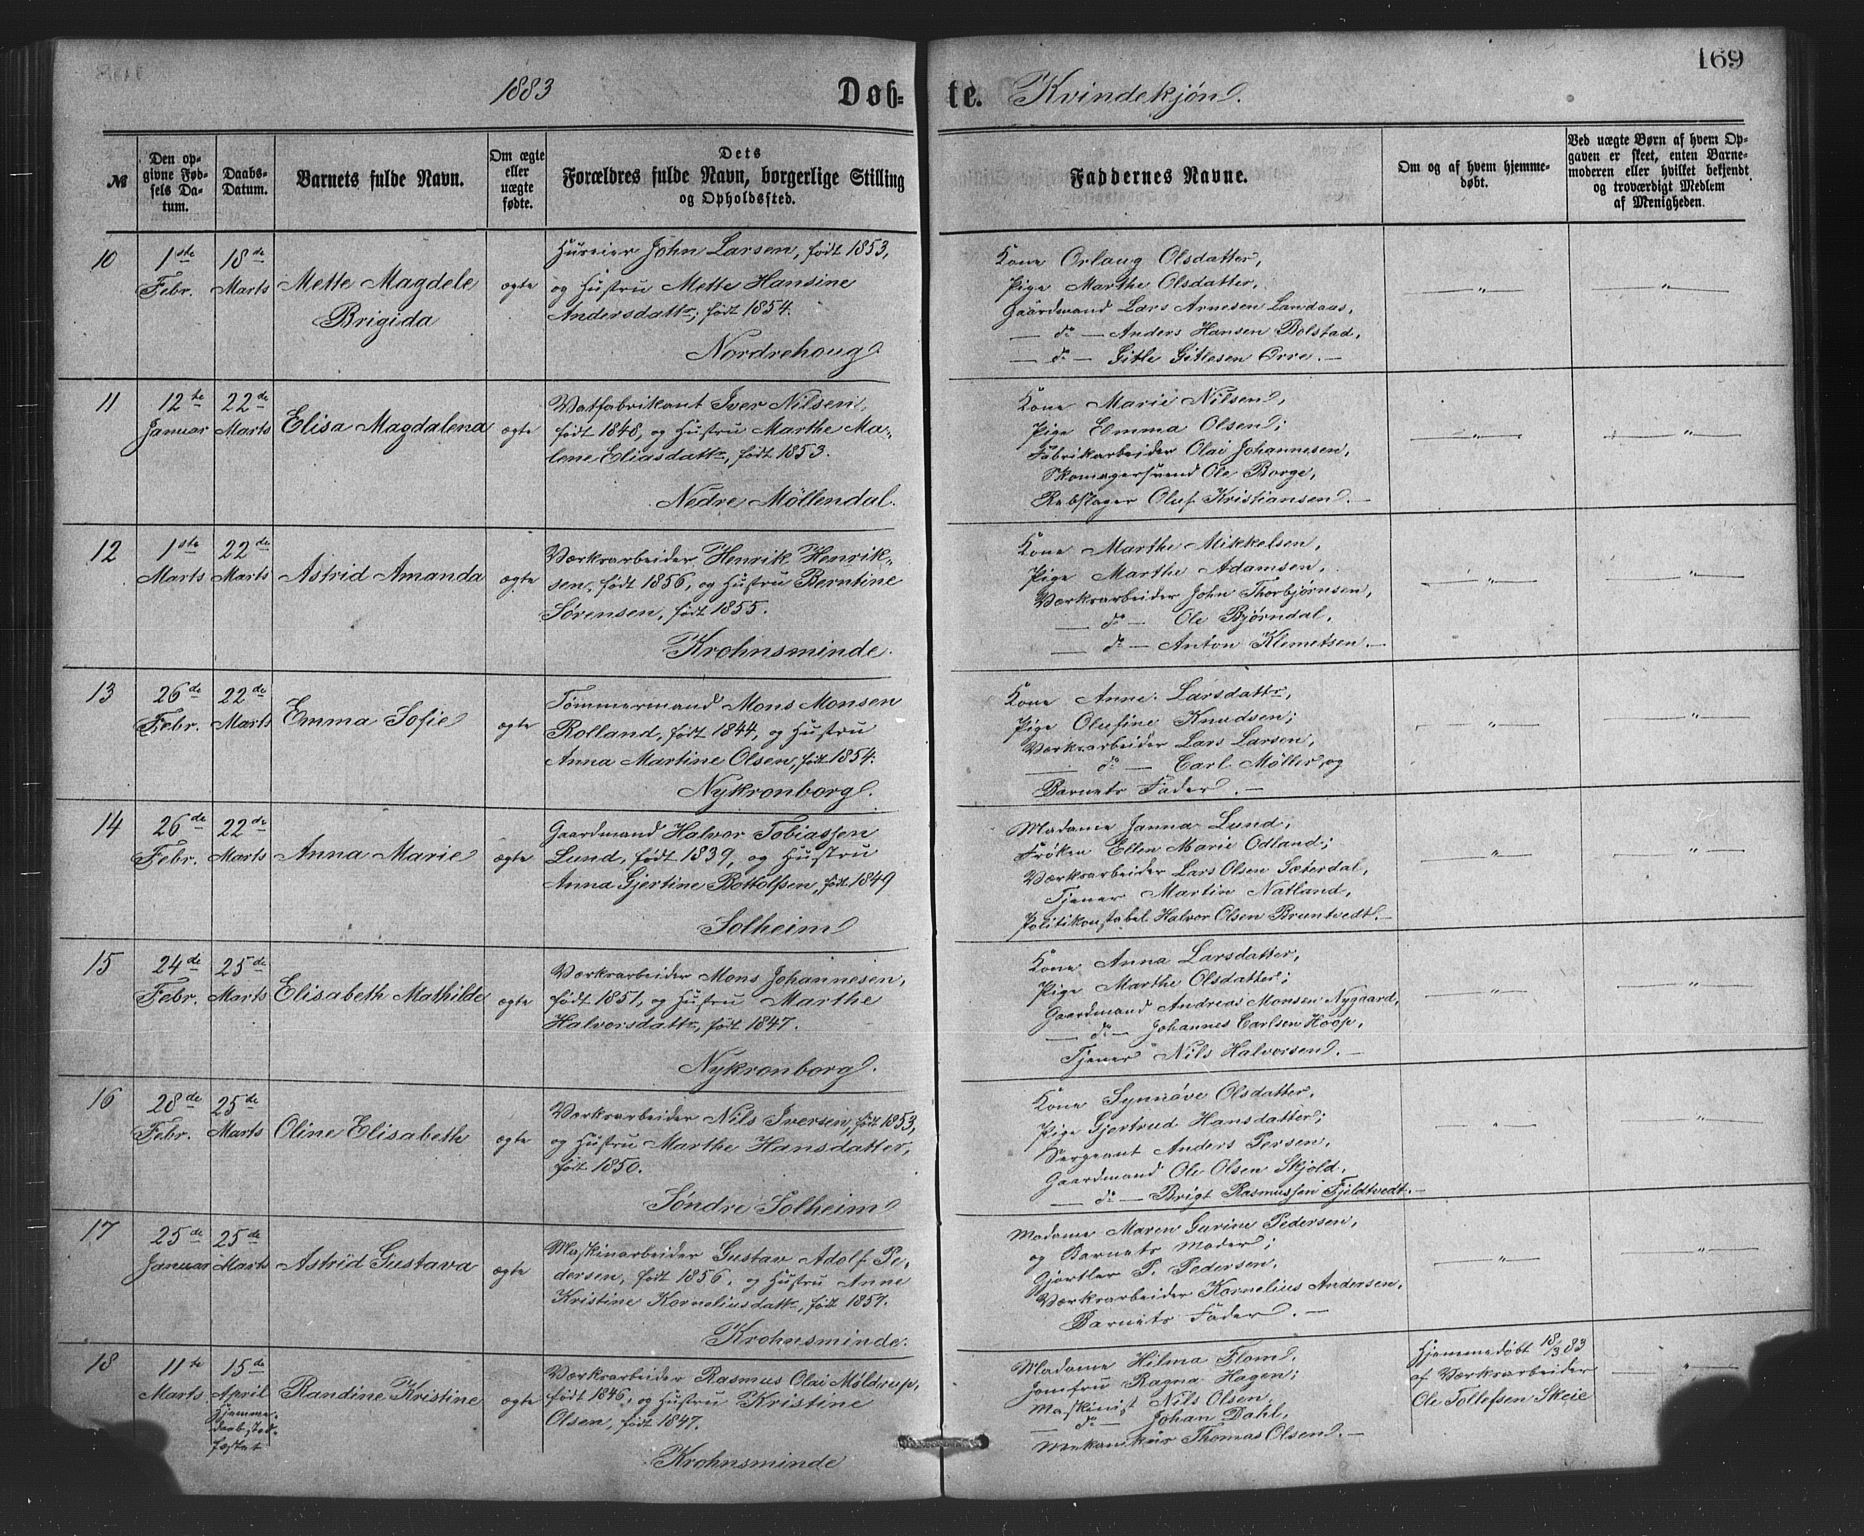 169
1883 Døb- te. Kvindekjøn.
№
Den op-
givne Fød-
sels Da-
tum.
Daabs-
Datum.
Barnets fulde Navn.
Om ægte
eller
uægte
fødte.
Dets
Forældres fulde Navn, borgerlige Stilling
og Opholdssted.
Faddernes Navne.
Om og af hvem hjemme-
døbt.
Ved uægte Børn af hvem Op-
gaven er skeet, enten Barne-
moderen eller hvilket bekjendt
og troværdigt Medlem
af Menigheden.
10
1ste
Febr.
18de
Marts
Mette Magdele
Brigida
ægte
Huseier John Larsen, født 1853,
og Hustru Mette Hansine
Andersdattr, født 1854.
Nordrehoug.
Kone Orlaug Olsdatter,
Pige Marthe Olsdatter,
Gaardmand Lars Arnesen Landaas,
— do — Anders Hansen Bolstad,
— do — Gitle Gitlesen Ørre. —
— " —
— " —
11
12te
Januar
22de
Marts
Elisa Magdalena
ægte
Vatfabrikant Iver Nilsen,
født 1848, og Hustru Marthe Ma-
lene Eliasdattr, født 1853.
Nedre Møllendal.
Kone Marie Nilsen,
Pige Emma Olsen;
Fabrikarbeider Olai Johannesen,
Skomagersvend Ole Borge,
Rebslager Oluf Kristiansen. —
— " —
— " —
12
1ste
Marts
22de
Marts
Astrid Amanda
ægte
Værksarbeider Henrik Henrik-
sen, født 1856, og Hustru Berntine
Sørensen, født 1855.
Krohnsminde.
Kone Marthe Mikkelsen,
Pige Marthe Adamsen,
Værksarbeider John Thorbjørnsen,
— do — Ole Bjørndal,
— do — Anton Klemetsen. —
— " —
— " —
13
26de
Febr.
22de
Marts
Emma Sofie
ægte
Tømmermand Mons Monsen
Rolland, født 1844, og Hustru
Anna Martine Olsen, født 1854.
Nykronborg.
Kone Anne Larsdattr,
Pige Olufine Knudsen;
Værksarbeider Lars Larsen,
— do — Carl Møller, og
Barnets Fader. —
— " —
— " —
14
26de
Febr.
22de
Marts
Anna Marie
ægte
Gaardmand Halvor Tobiassen
Lund, født 1839, og Hustru
Anna Gjertine Bottolfsen, født 1849
Solheim
Madame Janna Lund,
Frøken Ellen Marie Odland;
Værksarbeider Lars Olsen Sæterdal,
Tjener Martin Natland,
Politikonstabel Halvor Olsen Bruntvedt. —
— " —
— " —
15
24de
Febr.
25de
Marts
Elisabeth Mathilde
ægte
Værksarbeider Mons Johannesen,
født 1851, og Hustru Marthe
Halvorsdattr, født 1847.
Nykronborg.
Kone Anna Larsdatter,
Pige Marthe Olsdatter;
Gaardmand Andreas Monsen Nygaard,
— do — Johannes Carlsen Hoop,
Tjener Nils Halvorsen. —
— " —
— " —
16
28de
Febr.
25de
Marts
Oline Elisabeth
ægte
Værksarbeider Nils Iversen, født 1853,
og Hustru Marthe Hansdatter,
født 1850.
Søndre Solheim
Kone Synnøve Olsdatter,
Pige Gjertrud Hansdatter;
Sergeant Anders Persen,
Gaardmand Ole Olsen Skjold,
— do — Brigt Rasmussen Fjeldtvedt. —
— " —
— " —
17
25de
Januar
25de
Marts
Astrid Gustava
ægte
Maskinarbeider Gustav Adolf Pe-
dersen, født 1856, og Hustru Anne
Kristine Korneliusdattr, født 1857.
Krohnsminde.
Madame Maren Gurine Pedersen,
og Barnets Moder;
Gjørtler P. Pedersen,
Værksarbeider Kornelius Andersen,
Barnets Fader. —
— " —
— " —
18
11te
Marts
15de
April
Hjemme-
daabstad-
fæstet
Randine Kristine
ægte
Værksarbeider Rasmus Olai Møldrup,
født 1846, og Hustru Kristine
Olsen, født 1847.
Krohnsminde
Madame Hilma Flom,
Jomfru Ragna Hagen;
Maskinist Nils Olsen,
— do — Johan Dahl,
Mekanikus Thomas Olsen. —
Hjemmedøbt 18/3 83
af Værksarbeider
Ole Tollefsen Skeie
— " —